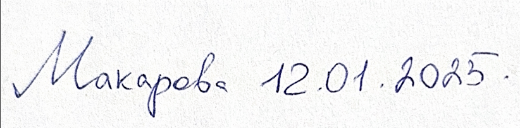 Макарова 12.01.2025.